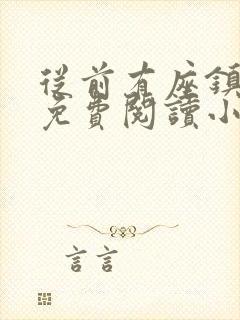 從前有座鎮
免費閱讀小
言言